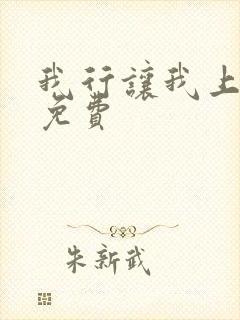 我行讓我上
免費
朱新武